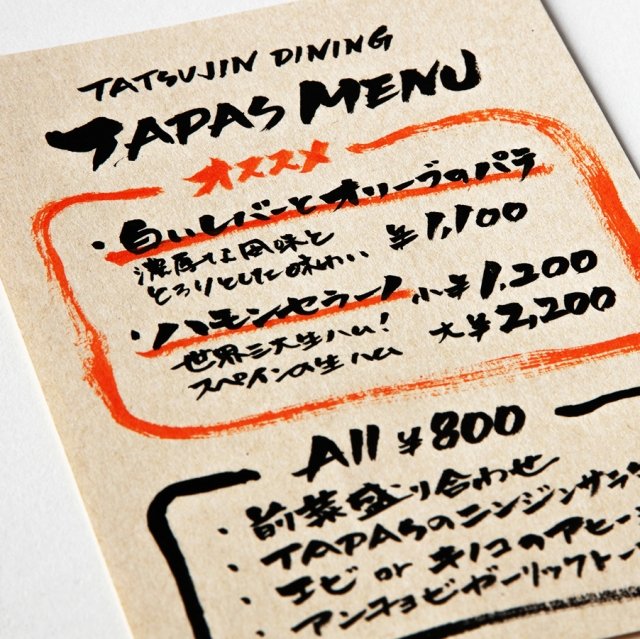 TATSUJIN DINING
TAPAS MENU
オススメ
・白いレバーとオリーブのパテ
濃厚な風味と
とろりとした味わい
¥1,100
・ハモンセラーノ 小¥1,200
世界三大生ハム! 大¥2,200
スペインの生ハム
All ¥800
・前菜盛り合わせ
・TAPASのニンジンサラダ
・エビ or キノコのアヒー
・アンチョビガーリックトー